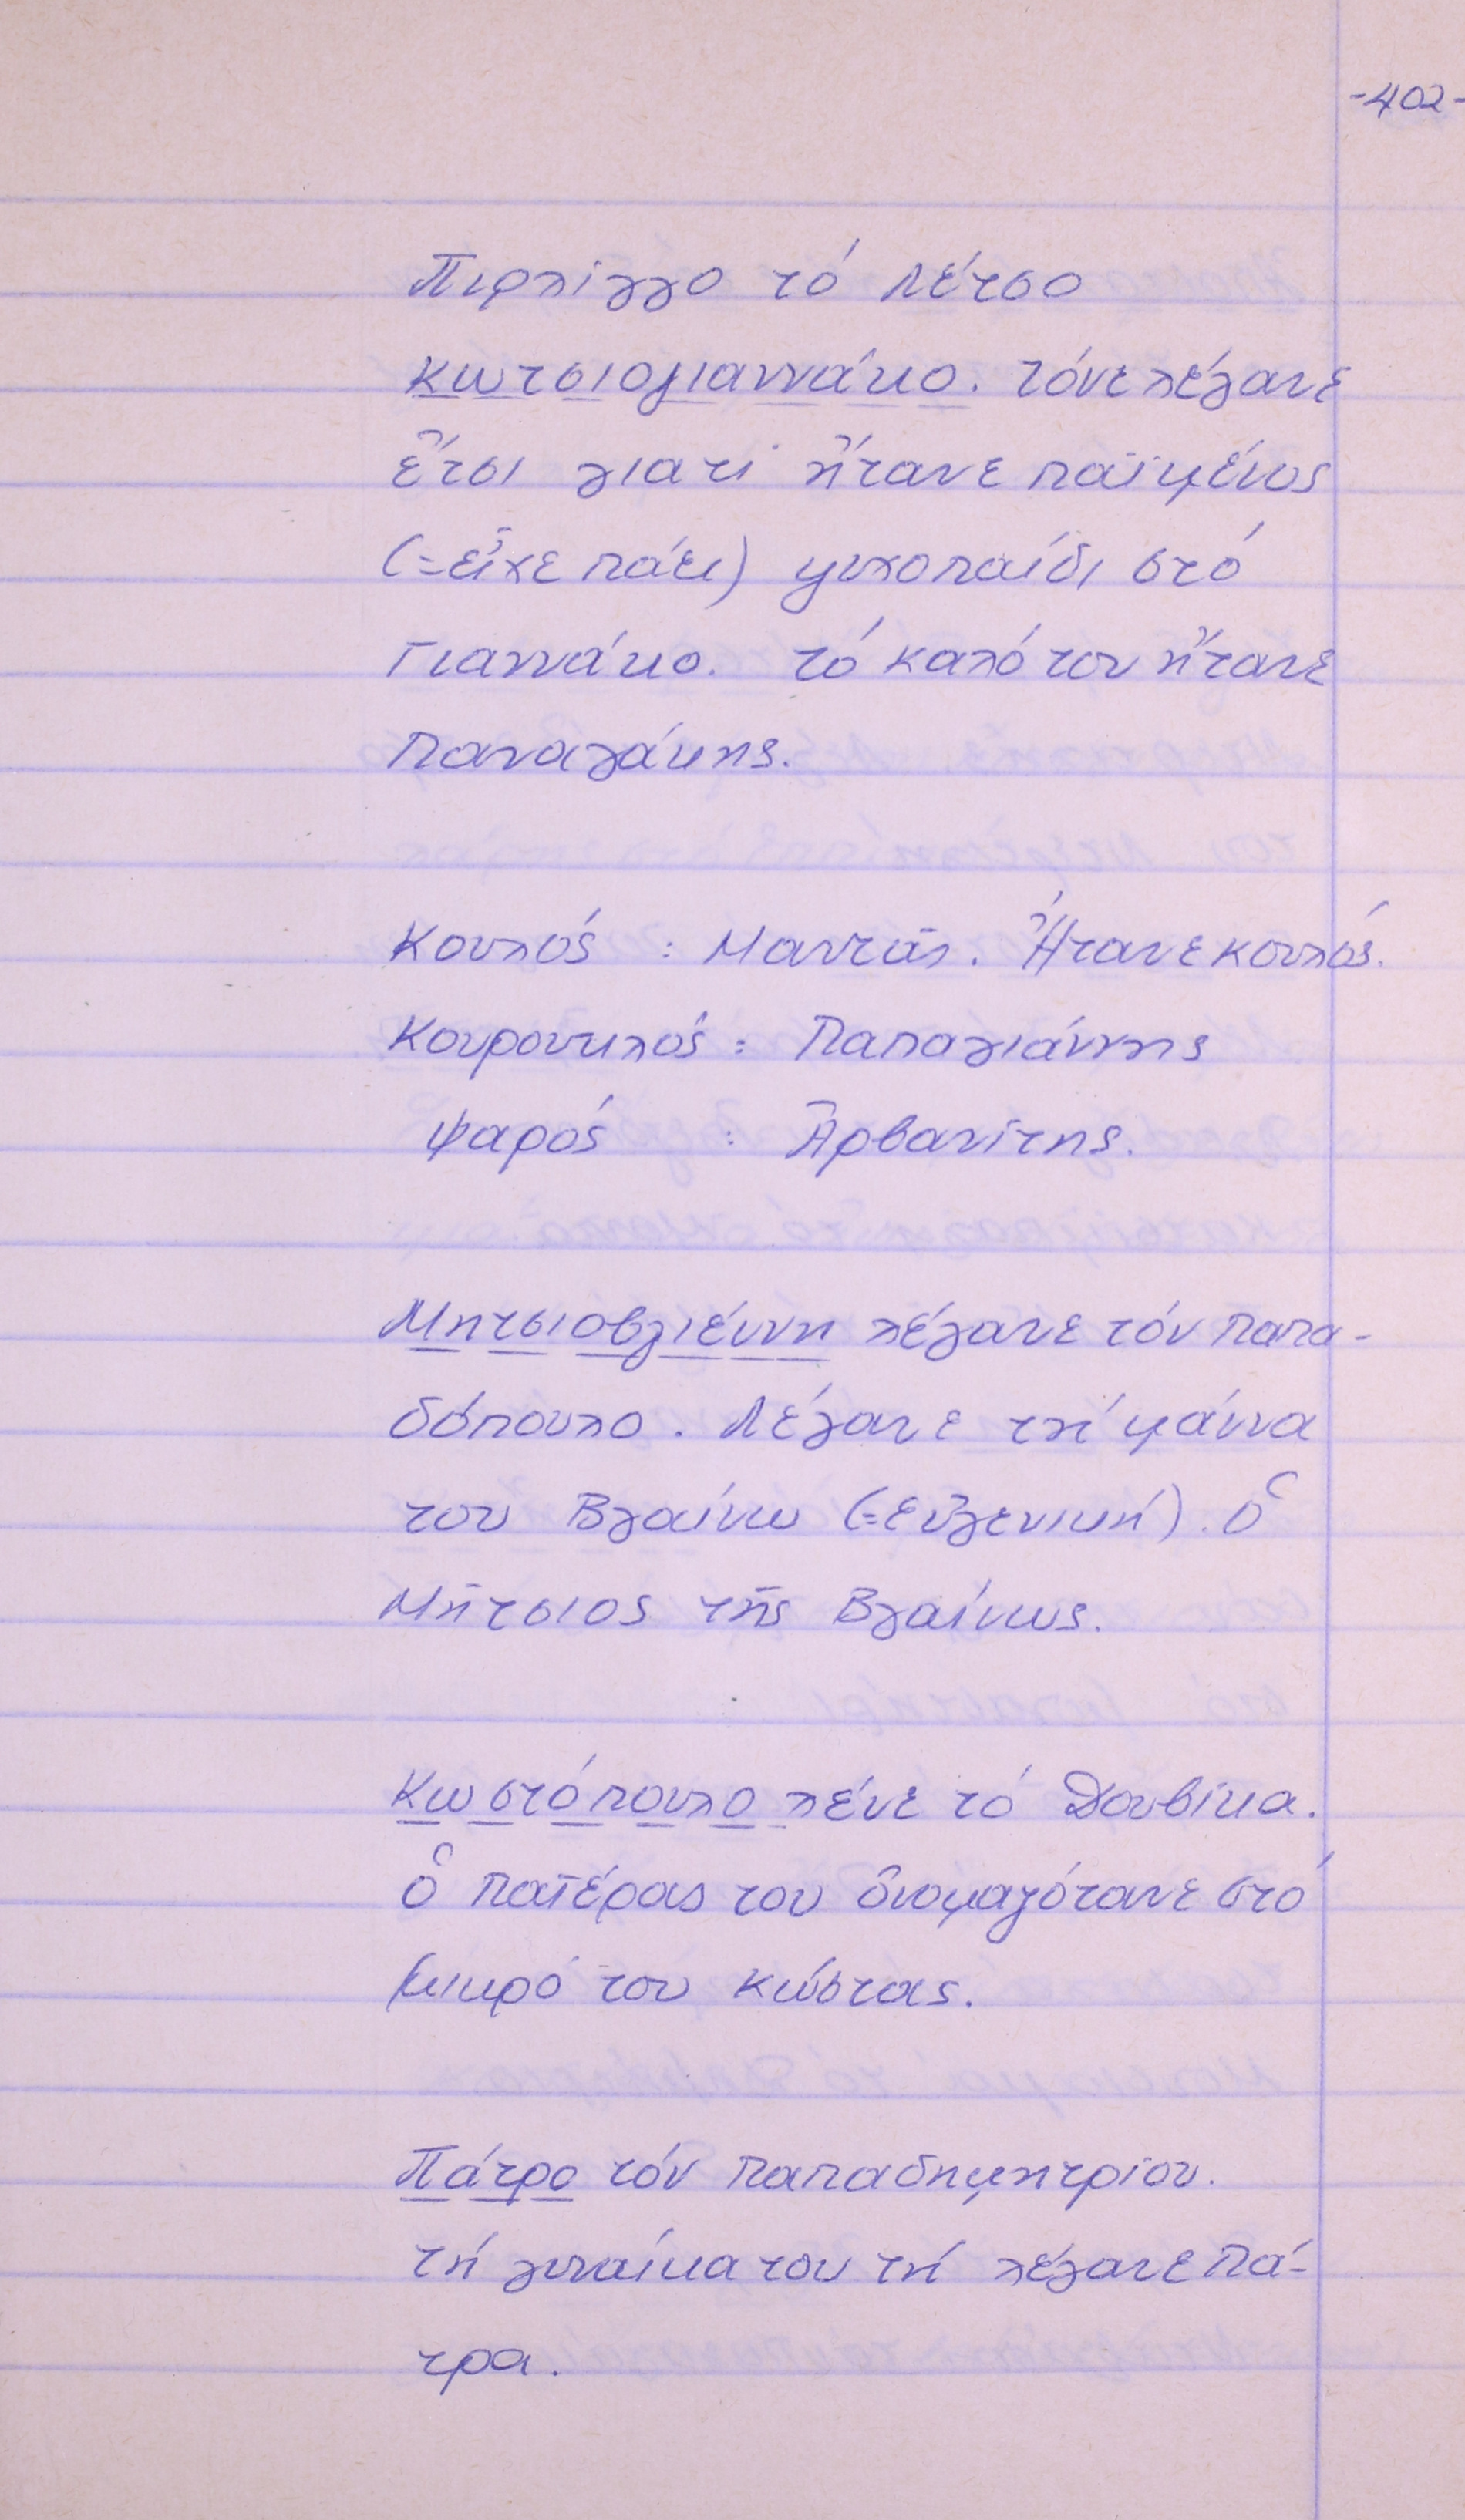 -402-
Πιρπίγγο τό Λέτσο
Κωτσιογιαννάκο. τόνε λέγανε
ἔτσι γιατί ἤτανε παϊμένος
(=εἶχε πάει) ψυχοπαίδι στό
Γιαννάκο. τό καλό του ἤτανε
Παναγάκης.
Κουλός : Μαντᾶς. Ἤτανε κουλός.
Κουρουπλός : Παπαγιάννης
Ψαρός : Ἀρβανίτης.
Μητσιοβγιέννη λέγανε τόν Παπα-
δόπουλο. Λέγανε τή μάννα
του Βγαίνω (=εὐγενική). ὁ
Μῆτσιος τῆς Βγαίνως.
Κωστόπουλο λένε τό Δουβίκα.
ὁ πατέρας του ὀνομαζότανε στό
μικρό του Κώστας.
Πάτρο τόν Παπαδημητρίου.
τή γυναίκα του τή λέγανε Πά-
τρα.